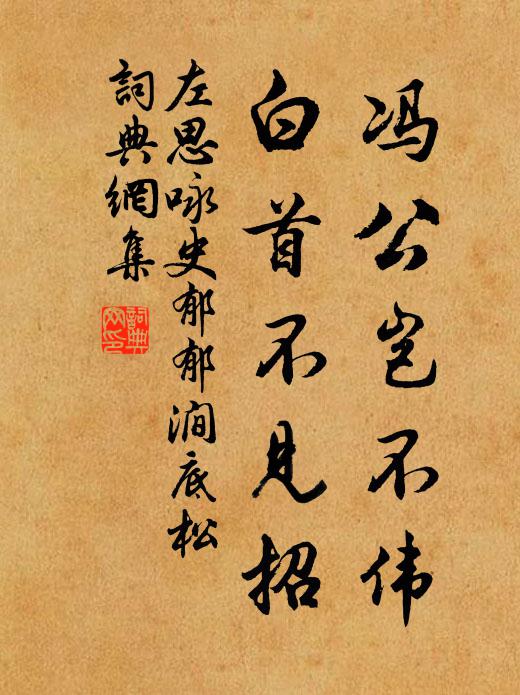 冯公岂不伟
白首不见招
左思咏史郁郁涧底松
詞典網集
詞典网印